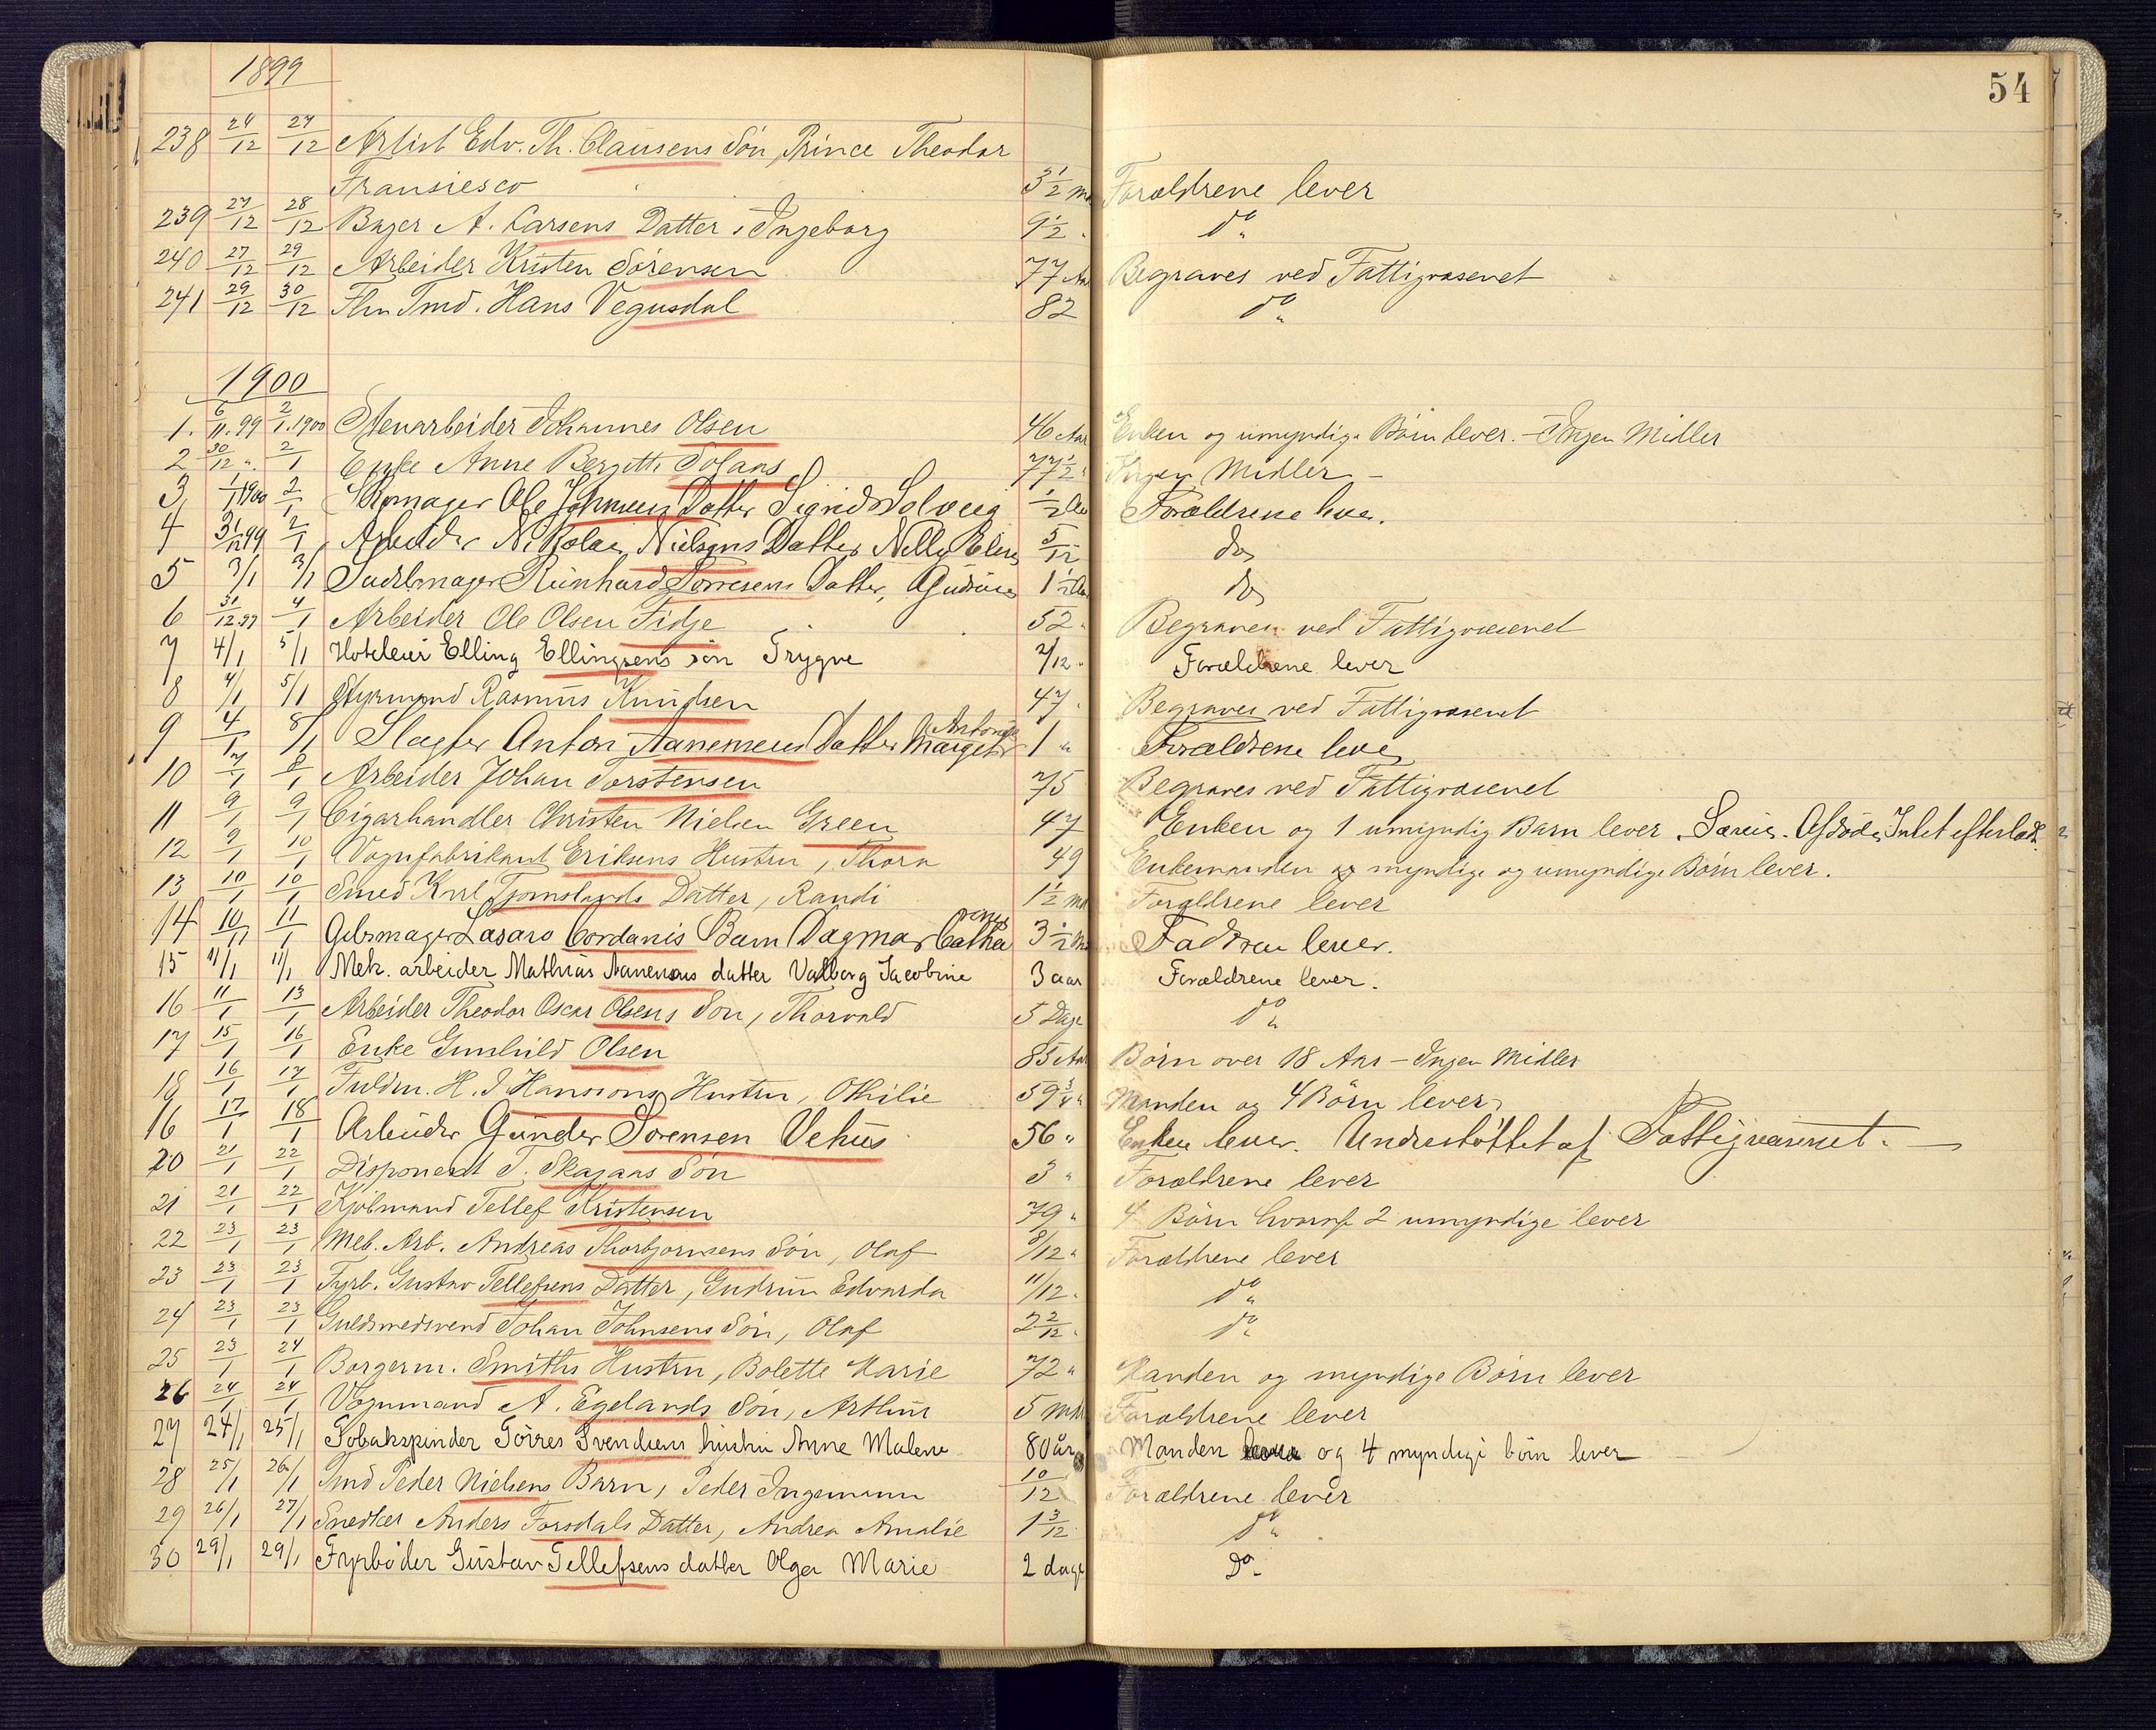 54
1899
238 24/12 27/12 Artist Edv. Th. Clausens Søn, Prince Theodor
Fransiesco 3 1/2 Md Forældrene lever
239 27/12 28/12 Bager A. Larsens Datter, Ingeborg 9 1/2 " do
240 27/12 29/12 Arbeider Kristen Sörensen 77 Aar Begraves ved Fattigvæsenet
241 29/12 30/12 Fhv. Tmd. Hans Vegusdal 82 do
1900
1. 6/11.99 2/1.1900 Stenarbeider Johannes Olsen 46 Aar Enken og umyndige Børn lever. - Ingen Midler
2 30/12 " 2/1 Enke Anne Bergitte Solaas 77 1/2 " Ingen Midler -
3, 1/1 1900 2/1 Skomager Ole Johnsens Datter Sigrid Solveig 1/2 Aar Forældrene lever.
4 31/12 99 2/1 Arbeider Nikolai Nielsens Datter Nelly Elise 5/12 do
5 3/1 3/1 Sadelmager Reinhard Torresens Datter, Gudrun 1 1/2 Aar do
6 31/12.99 4/1 Arbeider Ole Olsen Tidje 52 " Begraves ved Fattigvæsenet
7 4/1 5/1 Hoteleier Elling Ellingsens søn Trygve 2/12 " Forældrene lever
8 4/1 5/1 Styrmand Rasmus Knudsen 47 " Begraves ved Fattigvæsenet
9 4/1 8/1 Slagter Anton Aanensens Datter Margith Antonie 1 " Forældrene lever
10 7/1 8/1 Arbeider Johan Torstensen 75 Begraves ved Fattigvæsenet
11 9/1 9/1 Cigarhandler Christen Nielsen Green 47 Enken og 1 umyndig Barn lever. Særeie. Afdøde Intet efterladt
12 9/1 10/1 Vognfabrikant Eriksens Hustru, Thora 49 Enkemanden og myndige og umyndige Børn lever.
13 10/1 10/1 Smed Karl Tjomslands Datter, Randi 1 1/2 Md Forældrene lever
14 10/1 11/1 Gibsmager Lasaro Cordanis Barn Dagmar Catharina 3 1/2 Md Faderen lever.
15 11/1 11/1 Mek. arbeider Mathias Aanensens datter Valborg Jacobine 3 aar Forældrene lever.
16 11/1 13/1 Arbeider Theodor Oscar Olsens Søn, Thorvald 5 Dage do
17 15/1 16/1 Enke Gunhild Olsen 85 Aar Børn over 18 Aar - Ingen Midler
18 16/1 17/1 Fuldm. H. J. Hansons Hustru, Othilie 59 3/4 " Manden og 4 Børn lever
16 17/1 18/1 Arbeider Gunder Sørensen Vehus 56 " Enken lever. Understøttet af Fattigvæsenet. -
20 21/1 22/1 Disponent T. Skajaas Søn 3 " Forældrene lever
21 21/1 22/1 Kjøbmand Tellef Kristensen 79 " 4 Børn hvoraf 2 umyndige lever
22 23/1 23/1 Mek. Arb. Andreas Thorbjørnsens Søn, Olaf 8/12 " Forældrene lever
23 23/1 23/1 Fyrb. Gustav Tellefsens Datter, Gudrun Edvarda 11/12 " do
24 23/1 23/1 Guldsmedsvend Johan Johnsens Søn, Olaf 2 2/12 " do
25 23/1 24/1 Borgerm. Smiths Hustru, Bolette Marie 72 " Manden og myndige Børn lever
26 24/1 24/1 Vognmand A. Egelands Søn, Arthur 5 Md Forældrene lever
27 24/1 25/1 Tobakspinder Törres Svendsens hustru Anne Malene 80 år Manden og 4 myndige børn lever
28 25/1 26/1 Tmd Peder Nielsens Barn, Peder Ingemann 10/12 Forældrene lever
29 26/1 27/1 Snedker Anders Forsdals Datter, Andrea Amalie 1 3/12 do
30 29/1 29/1 Fyrbøder Gustav Tellefsens datter Olga Marie 2 dage Do